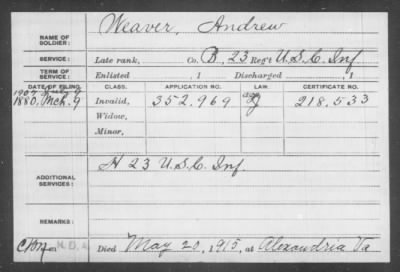 NAME OF SOLDIER: Weaver, Andrew
SERVICE: Late rank, Co. B, 23 Reg't U.S.C. Inf
TERM OF SERVICE: Enlisted , 1 Discharged , 1
DATE OF FILING. CLASS. APPLICATION NO. LAW. CERTIFICATE NO.
1907
1880, Mch. 9 Invalid, 352,969 218,533
Widow,
Minor,
ADDITIONAL SERVICES: H 23 U.S.C. Inf.
REMARKS:
Died May 20, 1915, at Alexandria Va